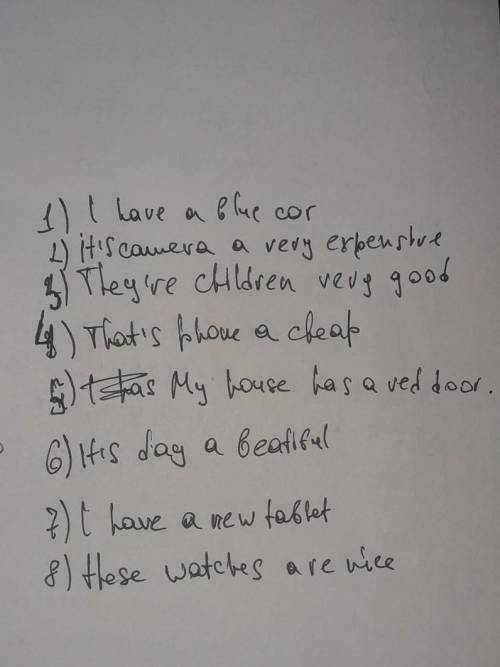 1) I have a blue car
2) it's camera a very expensive
3) They're children very good
4) That's phone a cheap
5) My house has a red door.
6) It's day a beatiful
7) I have a new tablet
8) these watches are nice